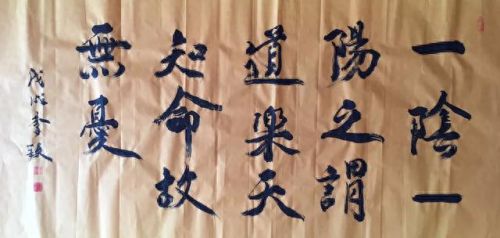 一陰一
陽之謂
道樂天
知命故
無憂